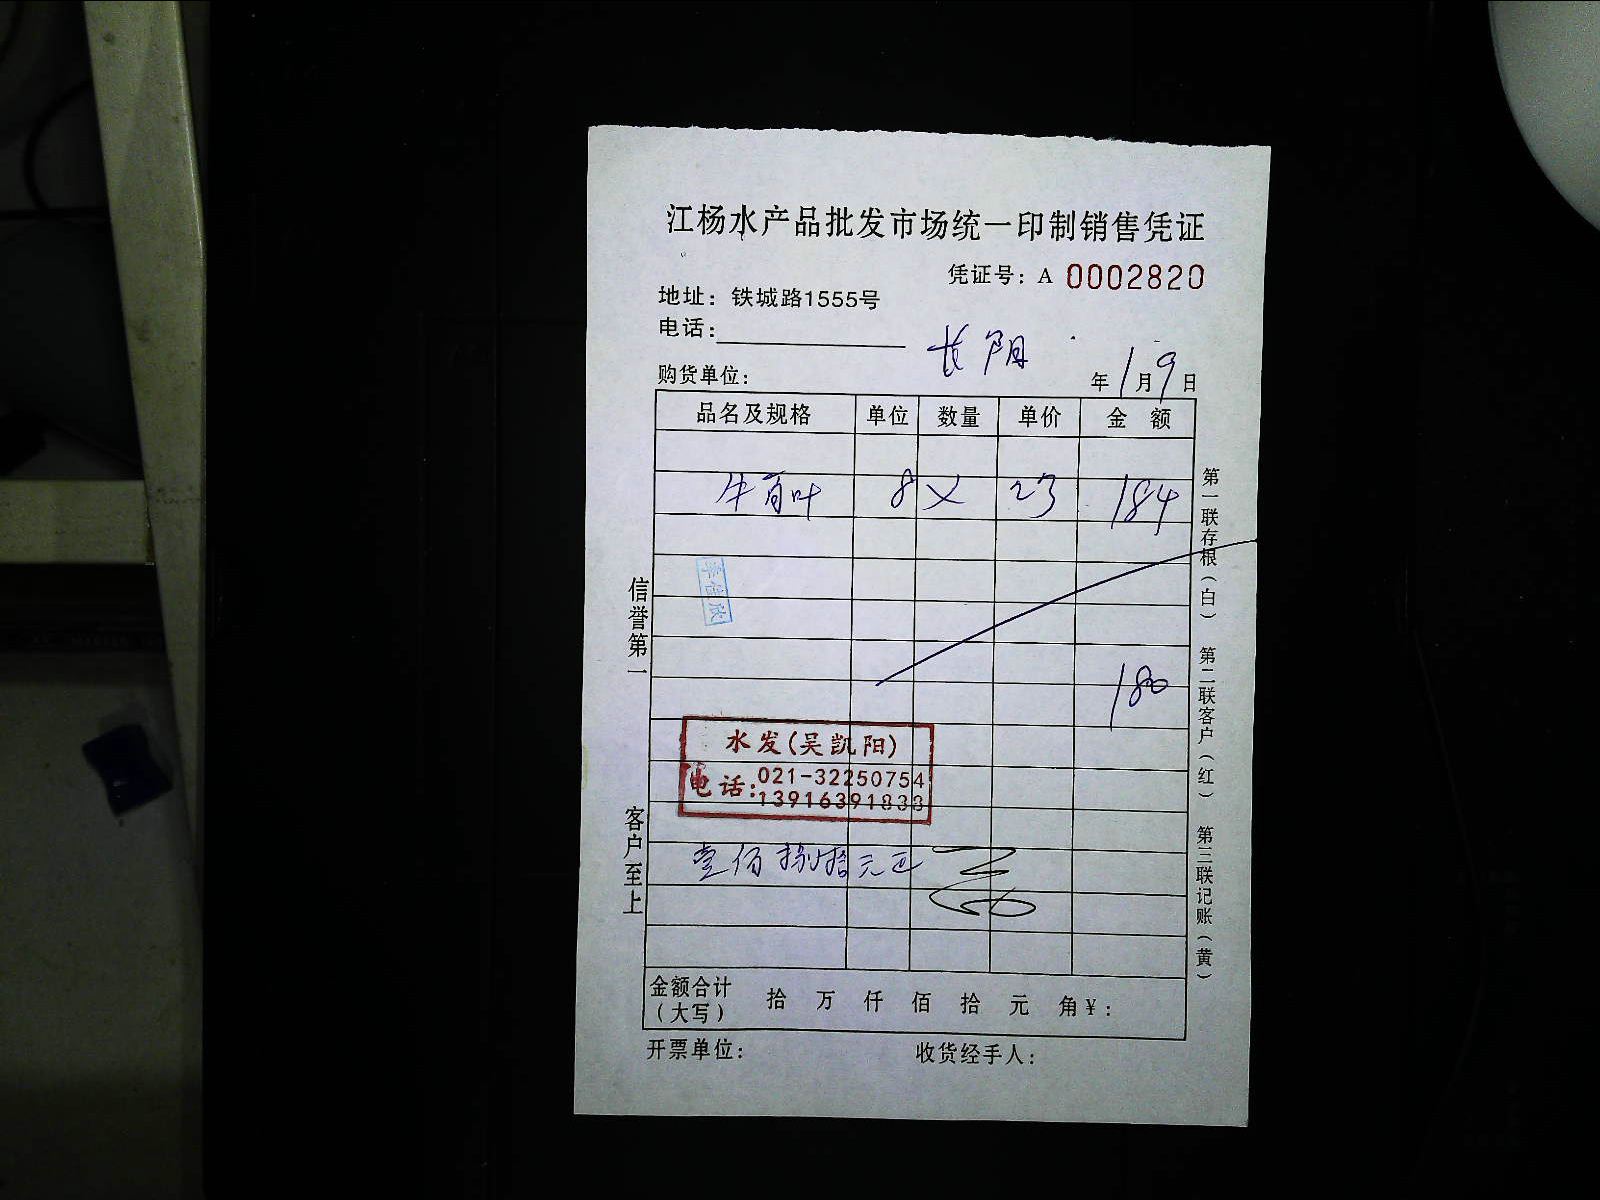 江杨水产品批发市场统一印制销售凭证
凭证号：A 0002820
地址：铁城路1555号
电话：
长阳
购货单位： 年1月9日
品名及规格 单位 数量 单价 金额
牛百叶 8 × 23 184
180
水发(吴凯阳)
电话：021-32250754
13916391838
壹佰捌拾元正
金额合计（大写） 拾 万 仟 佰 拾 元 角￥：
开票单位： 收货经手人：
信誉第一
客户至上
第一联存根（白） 第二联客户（红） 第三联记账（黄）